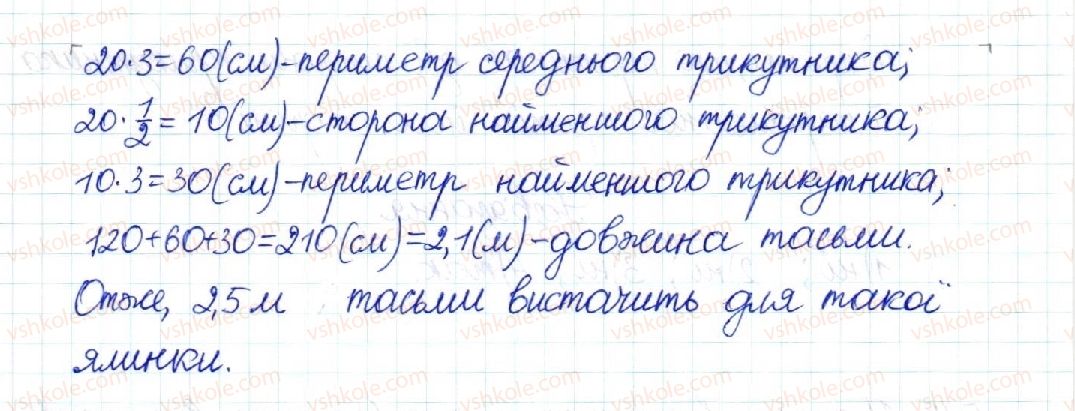 20·3=60(см)-периметр середнього трикутника;
20·1/2=10(см)-сторона найменшого трикутника;
10·3=30(см)-периметр найменшого трикутника;
120+60+30=210(см)=2,1(м)-довжина тасьми.
Отже, 2,5м тасьми вистачить для такої
ялинки.